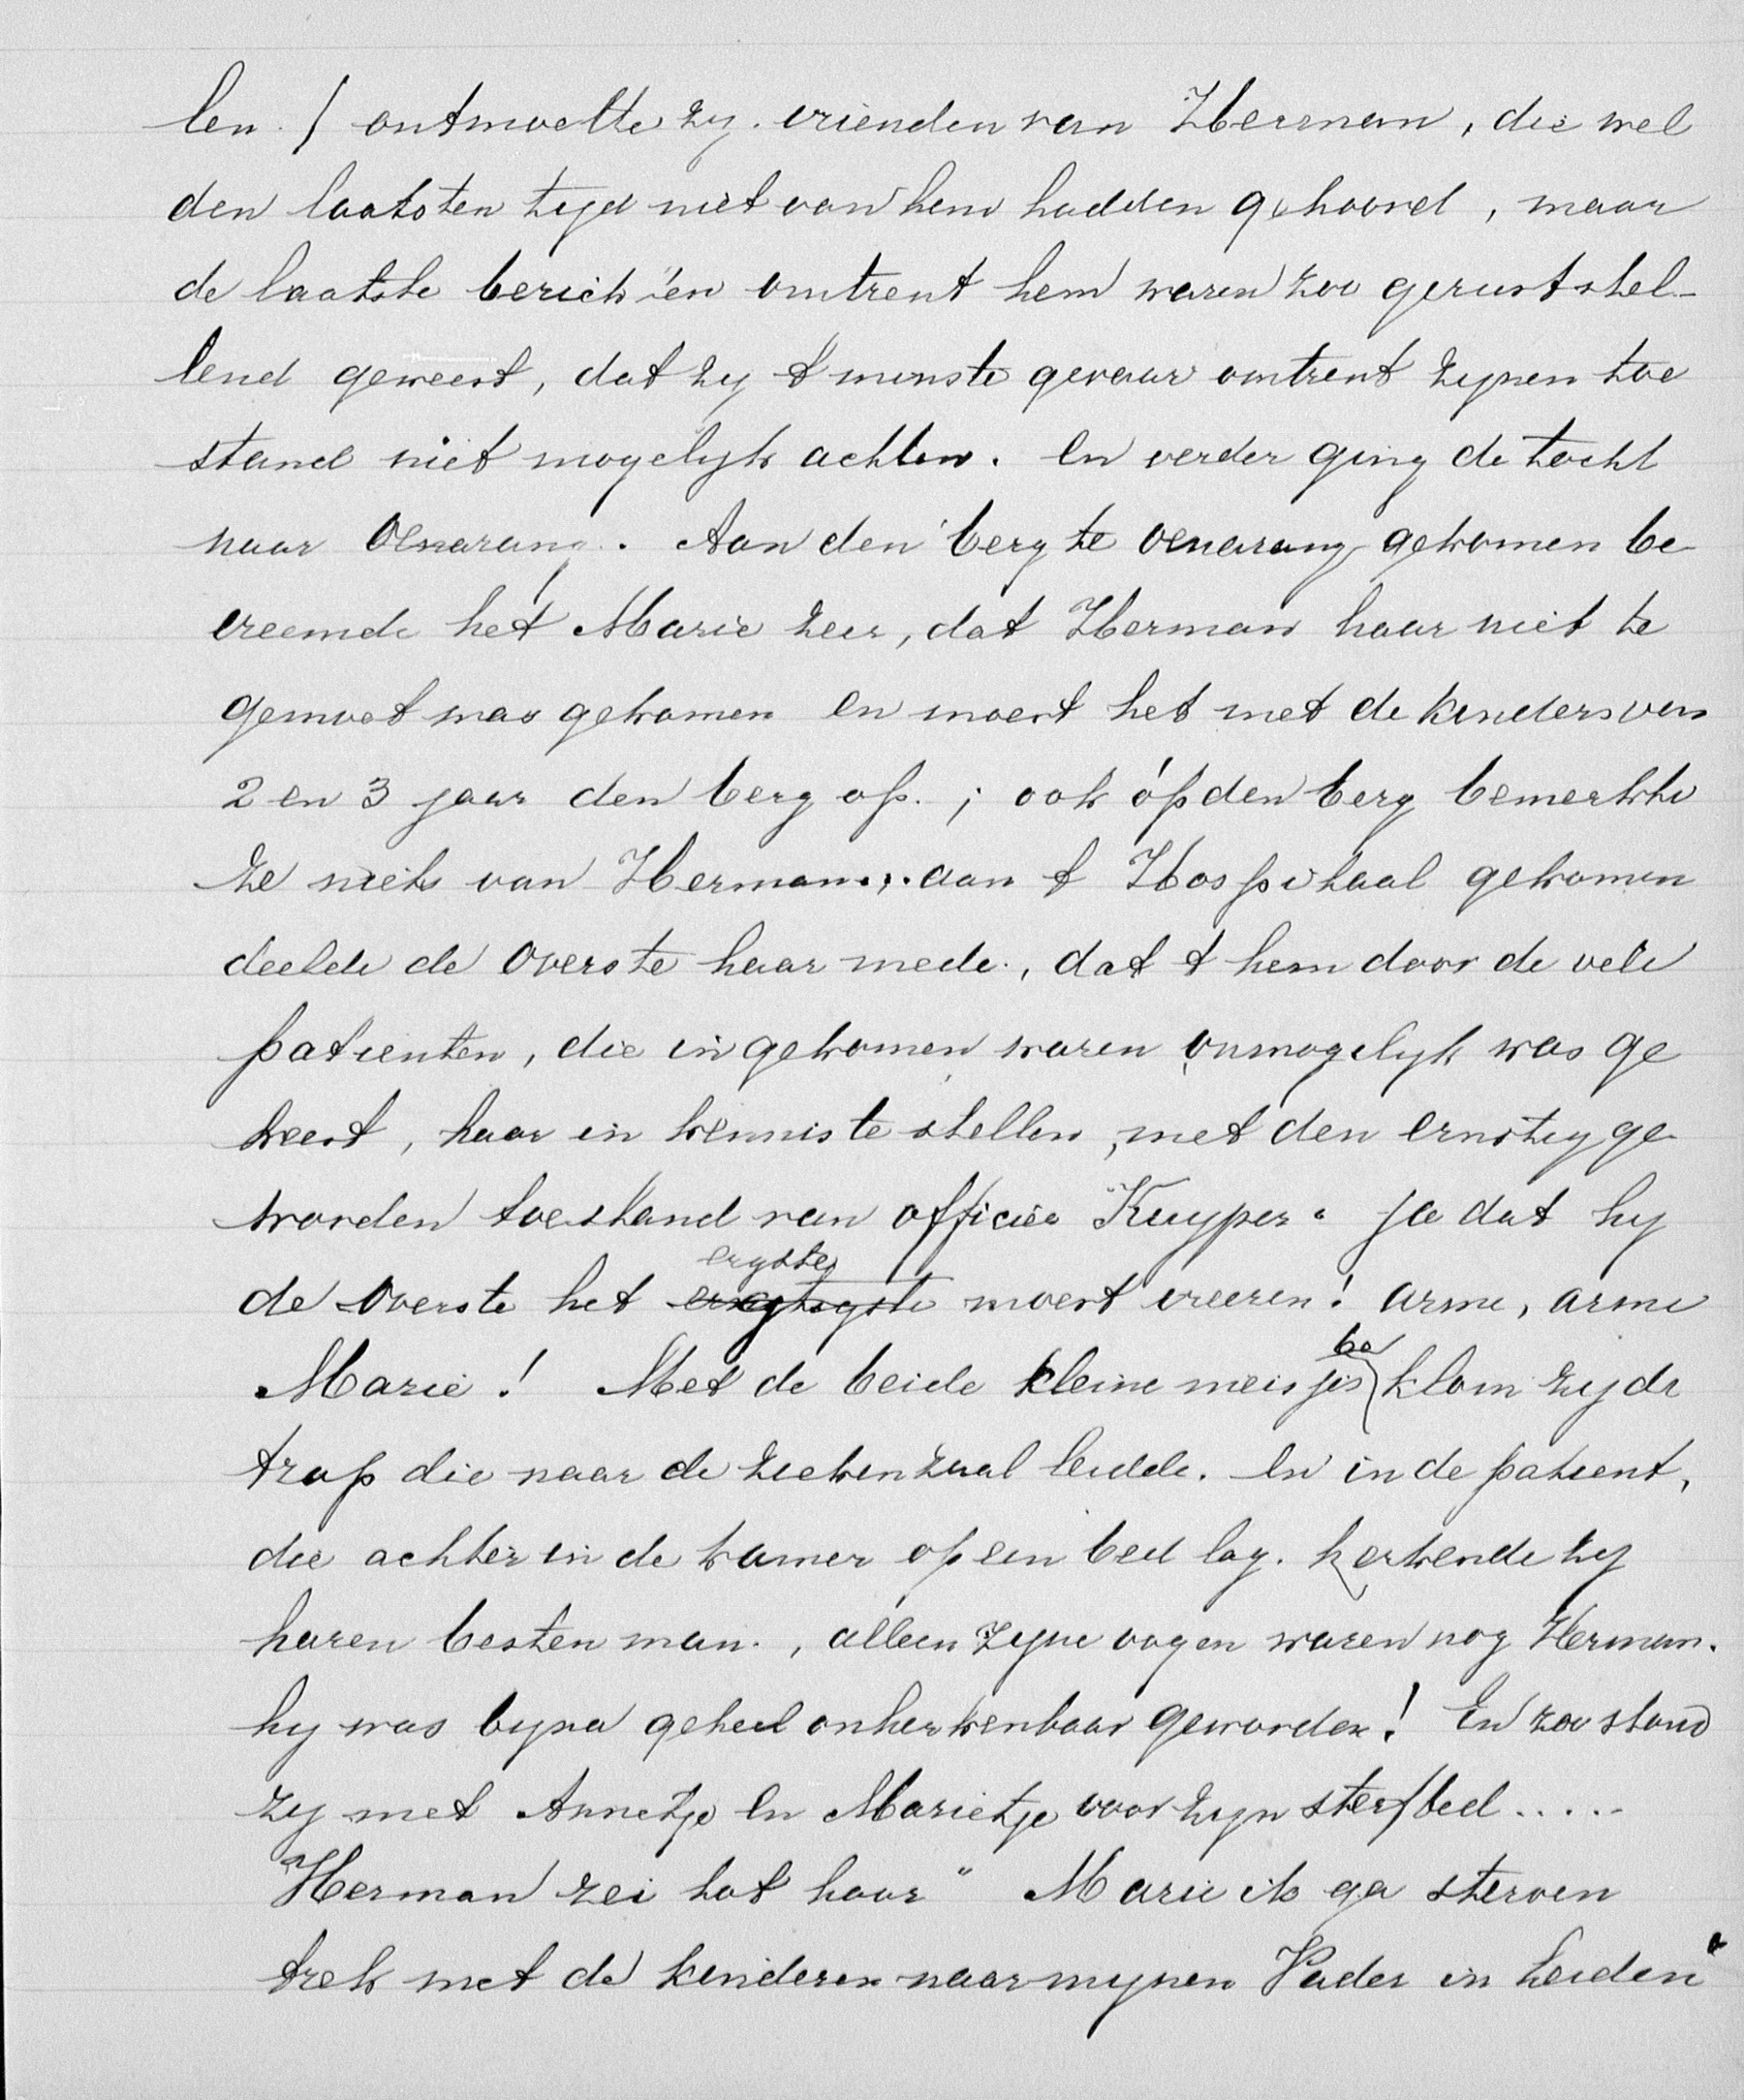 len. / ontmoette zy. vrienden van Herman, die wel
den laatsten tyd niet van hem hadden gehoord, maar
de laatste berichten omtrent hem waren zoo geruststel-
lend geweest, dat zy 't minste gevaar omtrent zynen toe
stand niet mogelyk achtten. En verder ging de tocht
naar Oenarang. Aan den berg te Oenarang gekomen be-
vreemde het Marie zeer, dat Herman haar niet te
gemoet was gekomen en moest het met de kinders van
2 en 3 jaar den berg op. ; ook óp den berg bemerkte
ze niets van Herman.,. aan 't Hospitaal gekomen
deelde de Overste haar mede., dat 't hem door de vele
patienten, die ingekomen waren onmogelyk was ge
weest, haar in kennis te stellen, met den ernstig ge-
worden toestand van officier Kuyper. Ja dat hy
de Overste het ergste moest vreezen! arme, arme
Marie! Met de beide kleine meisjes beklom zy de
trap die naar de ziekenzaal leidde. En in de patient,
die achter in de kamer op een bed lag. herkende zy
haren besten man., alleen zyne oogen waren nog Herman.
hy was byna geheel onherkenbaar geworden! En zoo stond
zy met Annetje en Marietje voor zyn sterfbed.....
Herman zei tot haar " Marie ik ga sterven
trek met de kinderen naar mynen Vader in Leiden"